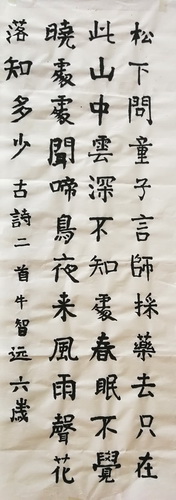 松下問童子言師採藥去只在
此山中雲深不知處春眠不覺
曉處處聞啼鳥夜来風雨聲花
落知多少古詩二首牛智远六歲